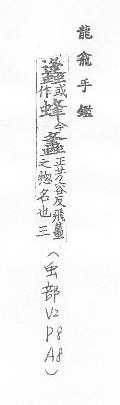 龍龕手鑑
蠭或作蜂今䗬正芳容反飛蟲之惣名也三
(虫部V2P8A8)